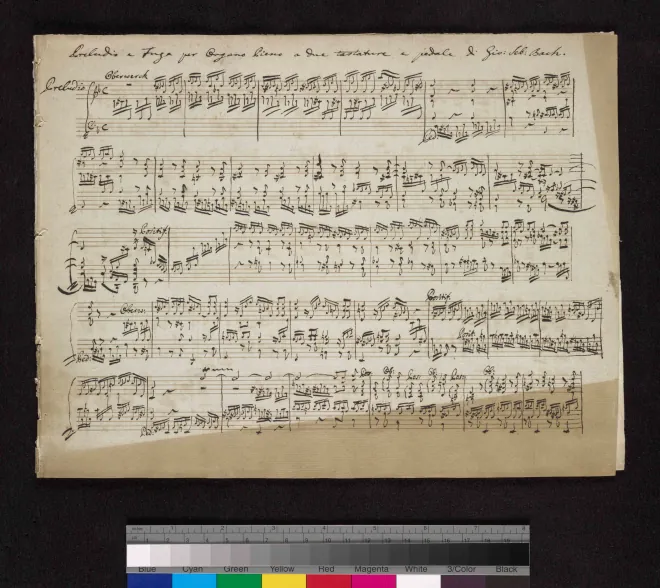 Preludio e Fuga per Organo Pieno a due tastature e pedale di Gio: Seb: Bach.
Preludio
Oberwerck
Ped.
Positif
Oberw.
Positif
Posit.
Ped.
Ped.
Blue Cyan Green Yellow Red Magenta White 3/Color Black